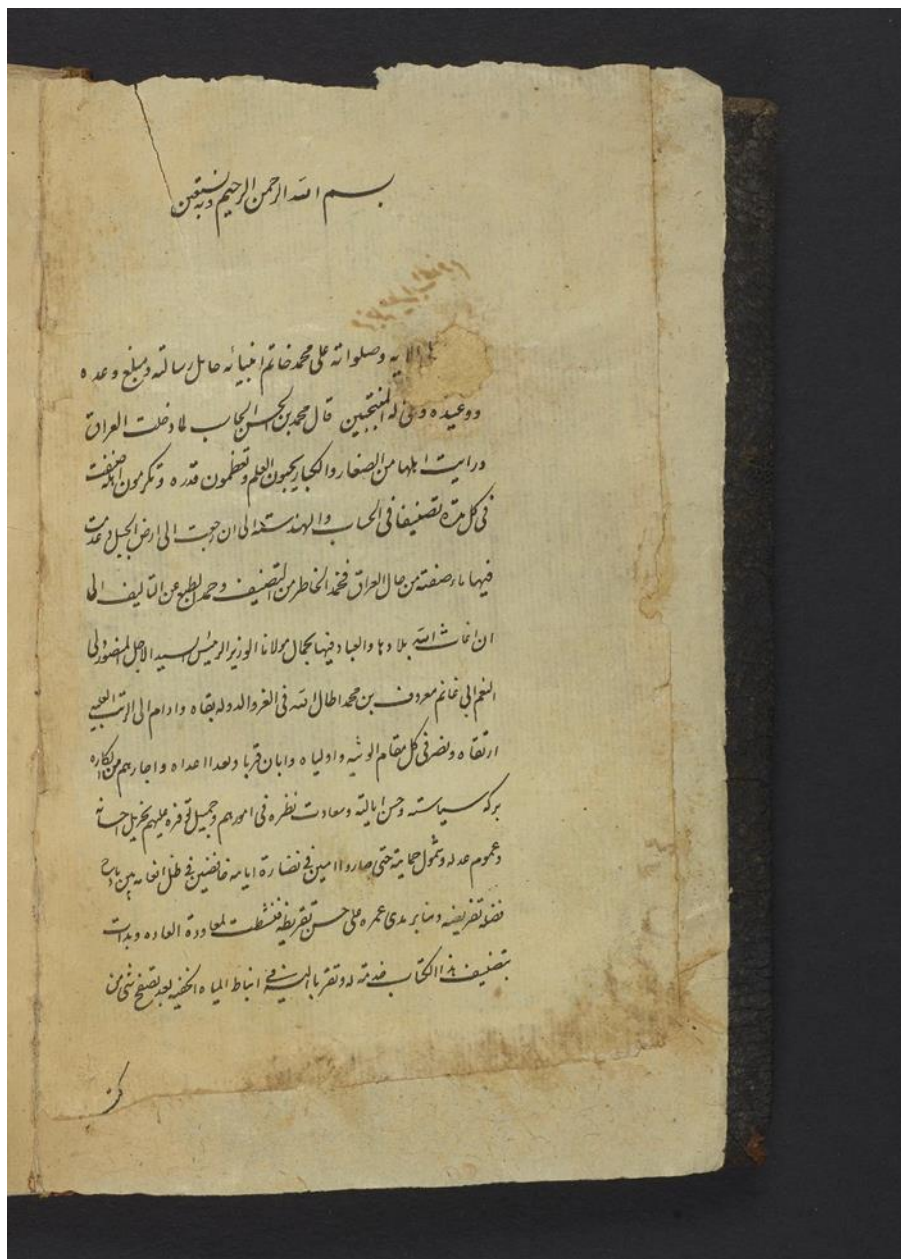 بسم الله الرحمن الرحيم وبه نستعين
وصلواته على محمد خاتم انبيائه حامل رسالته ومبلغ وعده
ووعيده وعلى اله المنتجبين قال محمد بن الحسن الحاسب لما دخلت العراق
ورايت اهلها من الصغار والكبار يحبون العلم وتعظمون قدره وتكرمون اهله صنفت
فى كل مدة تصنيفا فى الحساب والهندسة الى ان رجعت الى ارض الجبل وعدمت
فيها ما وصفته من حال العراق فخمد الخاطر من التصنيف وجمد الطبع عن التاليف الى
ان اغاث الله بلادها والعباد فيها بجمال مولانا الوزير الرئيس السيد الاجل المنصور ولى
النعم ابى غانم معروف بن محمد اطال الله فى العز والدوله بقاه وادام الى الرتب العليه
ارتقاه ونصر فى كل مقام الويته واولياه وابان قربا وبعدا اعداه واجارهم من المكاره
بركه سياسته وحسن ايالته وسعادت نظره فى امورهم وجميل توفره عليهم بجزيل احسانه
وعموم عدله وشمول حمايته حتى صاروا امنين فى نضارة ايامه خافضين فى ظل انعامه بين
تقريضه ومثابر مدى عمره على حسن تقريظه فنشطت لمعاودة العاده وبدات
بتصنيف هذا الكتاب خدمة له وتقربا اليه فى انباط المياه الخفيه بعد تصفح شى من
كتب